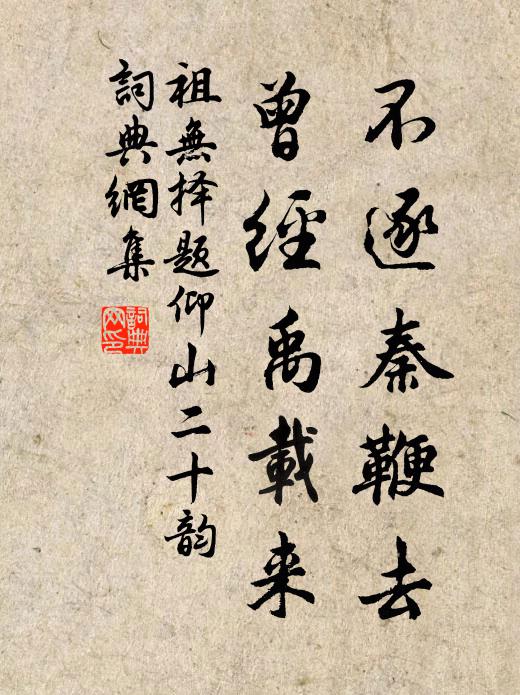 不逐秦鞭去
曾經禹載来
祖無择题仰山二十韵
詞典網集
詞典網印